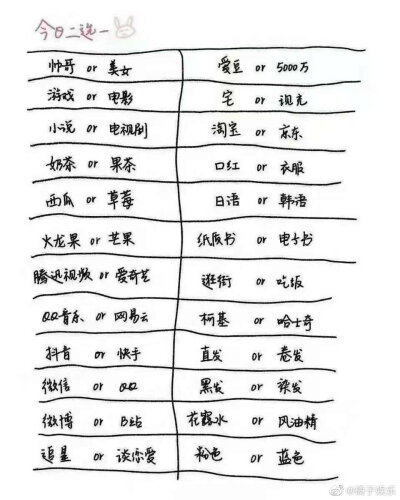 今日二选一
帅哥 or 美女
爱豆 or 5000万
游戏 or 电影
宅 or 现充
小说 or 电视剧
淘宝 or 京东
奶茶 or 果茶
口红 or 衣服
西瓜 or 草莓
日语 or 韩语
火龙果 or 芒果
纸质书 or 电子书
腾迅视频 or 爱奇艺
逛街 or 吃饭
QQ音乐 or 网易云
柯基 or 哈士奇
抖音 or 快手
直发 or 卷发
微信 or QQ
黑发 or 染发
微博 or B站
花露水 or 风油精
追星 or 谈恋爱
粉色 or 蓝色
@橘子娱乐